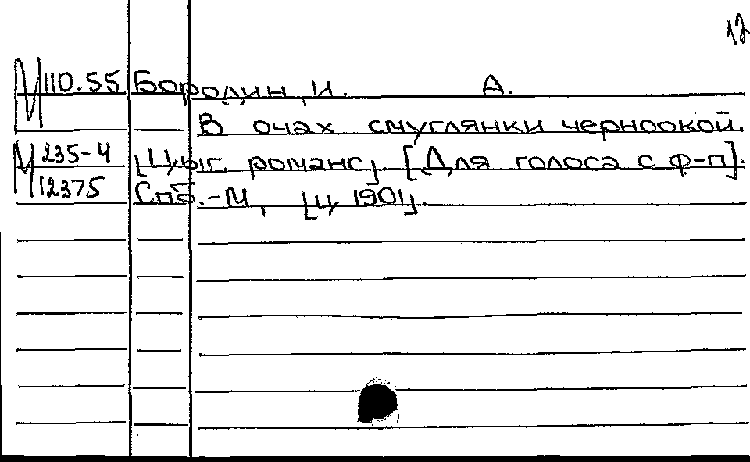 12
М 110.55 Бородин, И. А.
В очах смуглянки черноокой.
М 235-4 [Цыг. романс]. [Для голоса с ф-п].
М 12375 Спб.-М, [ц 1901].